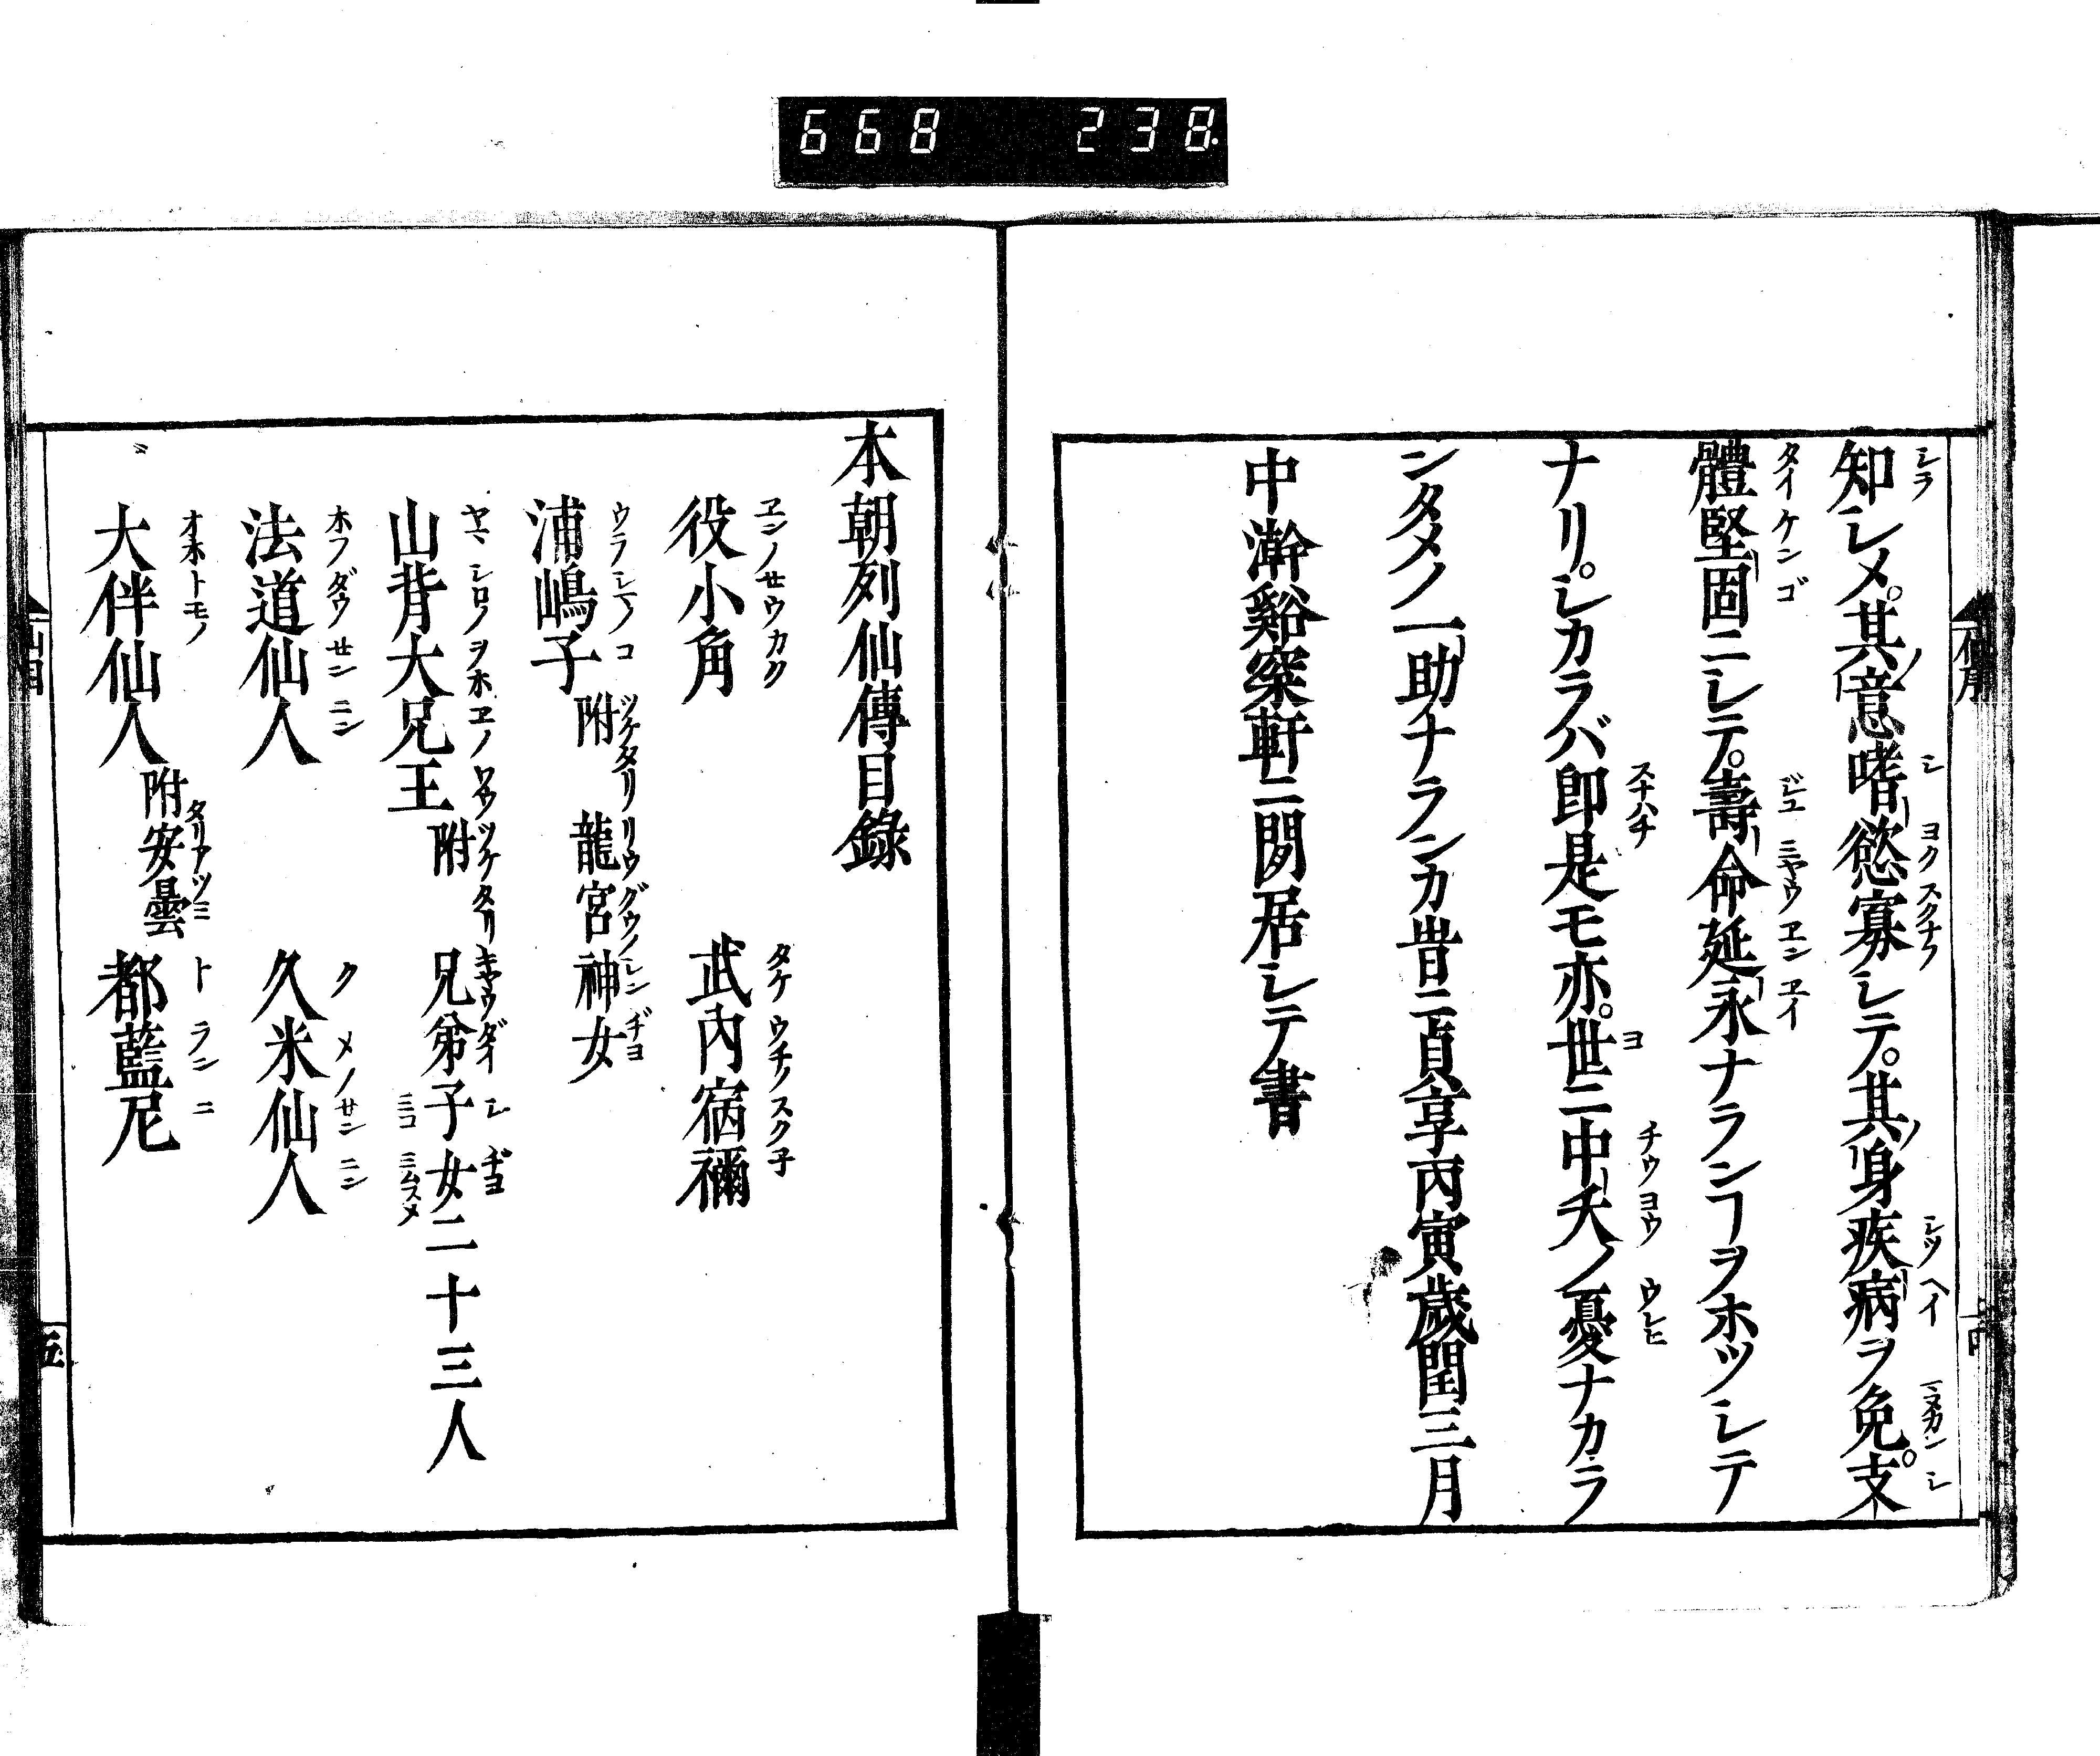 668 238
知シメ。其意嗜慾寡シテ。其身疾病ヲ免。支
體堅固ニシテ。壽命延永ナランヿヲホツシテ
ナリ。シカラバ即是モ亦。世ニ中夭ノ憂ナカラ
ンタメノ一助ナランカ旹ニ貞享丙寅歳閏三月
中澣谿室軒ニ閑居シテ書
本朝列仙傳目錄
役小角 武內宿禰
浦嶋子 附 龍宮神女
山背大兄王 附 兄弟子女二十三人
法道仙人 久米仙人
大伴仙人 附安曇 都藍尼
五